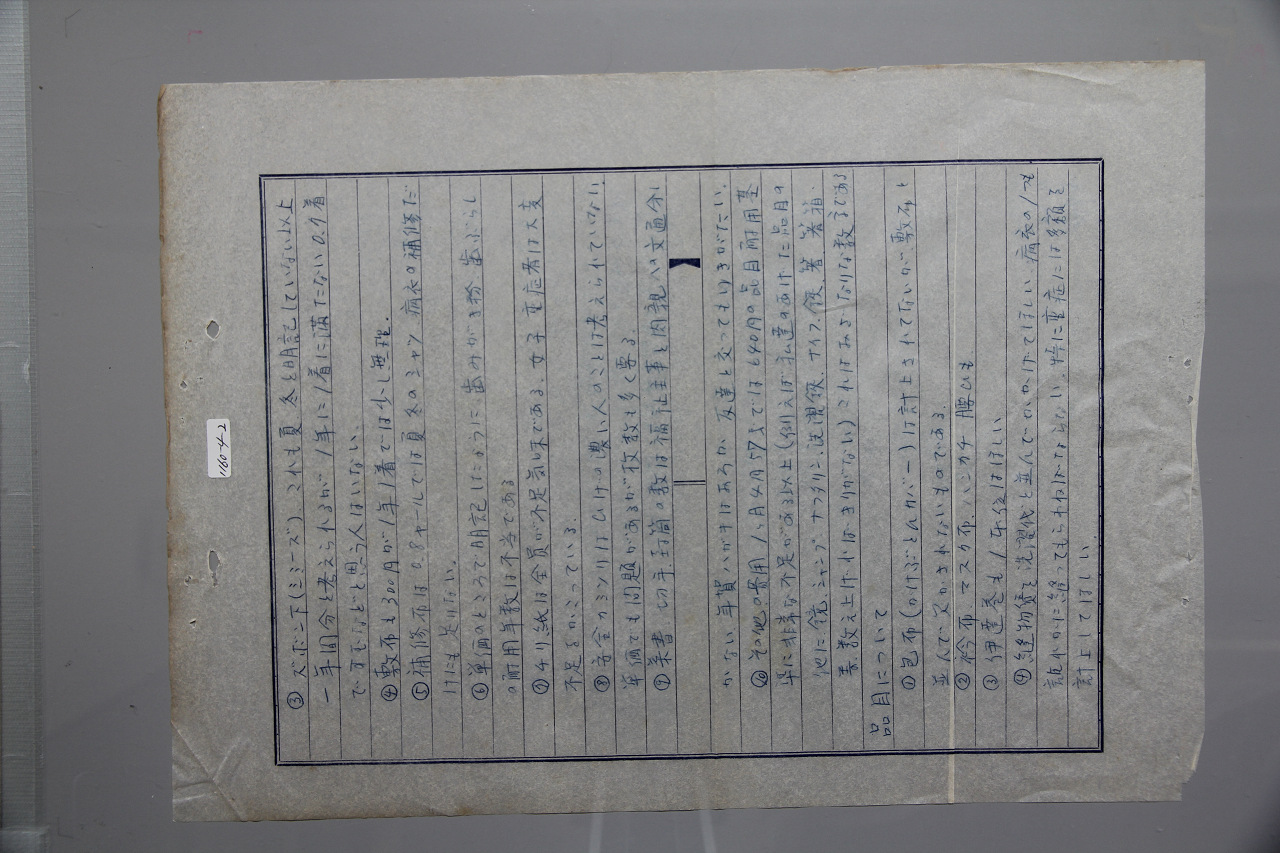 ③ ズボン下(ミミーズ) これも夏 冬と明記していない以上
一年間分と考えられるが 1年に1着に満たない0.9着
ですむなどと思う人はいない.
④ 敷布も300円が1年1着では少し無理.
⑤ 補修布は0.8ヤールでは夏冬のシャツ 病衣の補修だ
けにも足りない.
⑥ 単価のところで明記したように 歯みがき粉 歯ぶらし
の耐用年数は不当である
⑦ チリ紙は全員が不足気味である. 女子 重症者は大変
不足をかこっている.
⑧ 安全カミソリはひげの濃い人のことは考えられていない
単価でも問題があるが枚数も多く要る.
⑨ 葉書. 切手. 封筒の数は福祉主事と肉親への文通分し
かない 年賀ハガキはあるが 友達と交ってもいきがたい.
⑩ その他の費用 1ヶ月4円57銭ではと40円の品目耐用基
準に非常な不足がある以上(例えば 私達のあげた品目の
他に 鏡. シャンプ ナフタリン. 洗濯鋏. ナイフ. 鋏 箸 箸箱.
等数え上げればきりがない) これはあまりな数字である
品目について
① 包布(かけぶとんカバー)は計上されてないが敷布と
並んで欠かされないものである.
② 衿布. マスク布. ハンカチ 腰ひも
③ 伊達巻も1本位はほしい
④ 縫物賃を洗濯代と並んで心がけてほしい. 病衣の1つも
誰かに縫ってもらわねばならない. 特に重症には多額を
計上してほしい
1160-4-2